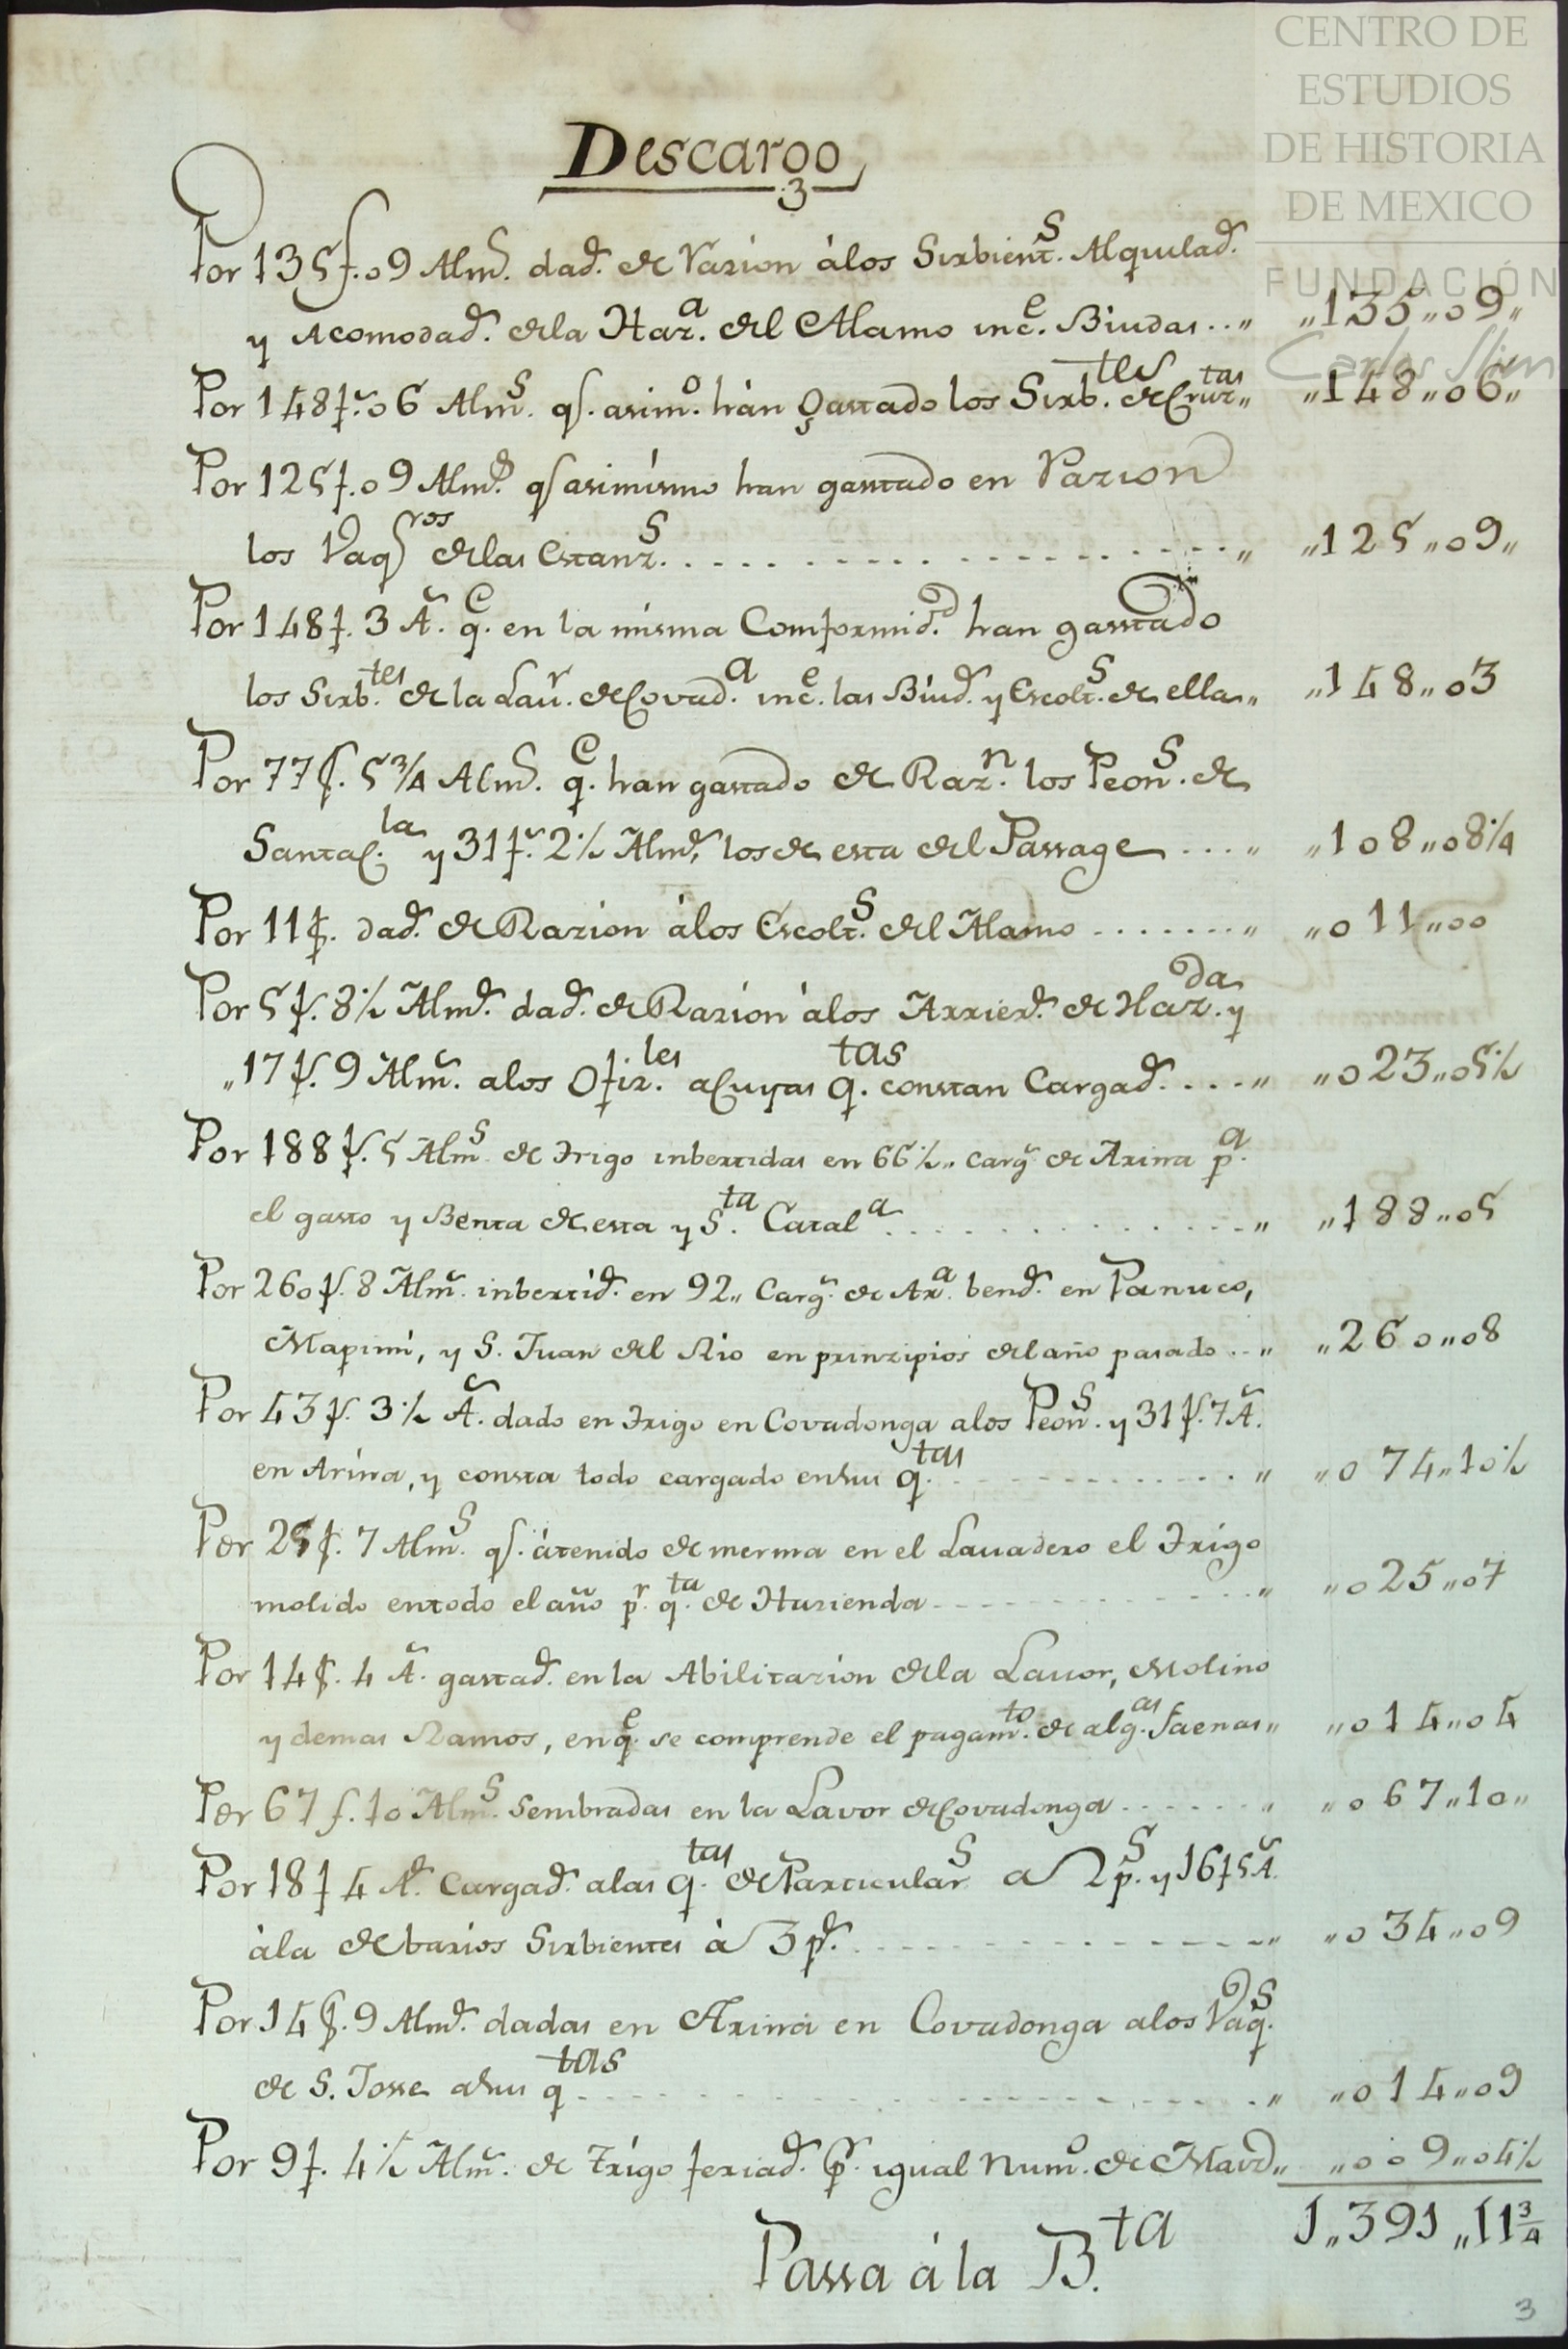 CENTRO DE
ESTUDIOS
DE HISTORIA
DE MEXICO
FUNDACIÓN
Carlos Slim
Descargo
Por 135f. 09 Alms. dads. de Razion álos Sirbients. Alquilads.
y Acomodads. dela Haza. del Alamo ince. Biudas.. „ „135„09„
Por 148fs. 06 Alms. q. asimo. hán gastado los Sirbtes. de Cruztas„ „148„06„
Por 125f. 09 Alms. q asimísmo han gastado en Razion
los Vaqros de las Estanzs. „ „125„09„
Por 148f. 3 As. qe. en la misma Comformidd. han gastado
los Sirbtes. de la Laur. de Covada. ince. las Biuds. y Escolts. de ella„ „148„03
Por 77f. 5 3/4 Alms. qe. han gastado de Razn. los Peons. de
Santa Cla. y 31fs. 2 1/2 Alms. los de esta del Passage .... „ „108„08 1/4
Por 11f. dads. de Razion álos Escolts. del Alamo ....... „ „011„00
Por 5f. 8 1/2 Alms. dads. de Razion álos Arriers. de Hazda. y
„17f. 9 Alms. alos Ofizles. a Cuyas qtas. constan Cargads. .... „ „023„05 1/2
Por 188f. 5 Alms de Trigo inbertidas en 66 1/2„ cargs de Arina pa.
el gasto y Benta de esta y Sta. Catala. „ „188„05
Por 260f. 8 Alms. inbertids. en 92„ Cargs. de Ara. bends. en Panuco,
Mapimi, y S. Juan del Rio en prinzipios del año pasado .. „ „260„08
Por 43f. 3 1/2 As. dado en Trigo en Covadonga alos Peons. y 31f. 7 As.
en Arina, y consta todo cargado en sus qtas. „ „074„10 1/2
Por 25f. 7 Alms. q. átenido de merma en el Lavadero el Trigo
molido entodo el año pr. qta. de Hazienda „ „025„07
Por 14f. 4 As. gastads. en la Abilitazion dela Lavor, Molino
y demas Ramos, en qe. se comprende el pagamto. de algas. faenas„ „014„04
Por 67f. 10 Alms. sembradas en la Lavor de Covadonga ...... „ „067„10„
Por 18f 4 As. Cargads. alas qtas. de Particulars a 2 ps. y 16f 5 As.
ála de barios Sirbientes á 3 ps. „ „034„09
Por 14f. 9 Alms. dadas en Arina en Covadonga alos Vaqs.
de S. Josse a sus qtas „ „014„09
Por 9f. 4 1/2 Alms. de Trigo feriads. pr. igual Numo. de Maiz„ „009„04 1/2
1„391„11 3/4
Passa á la Bta.
3